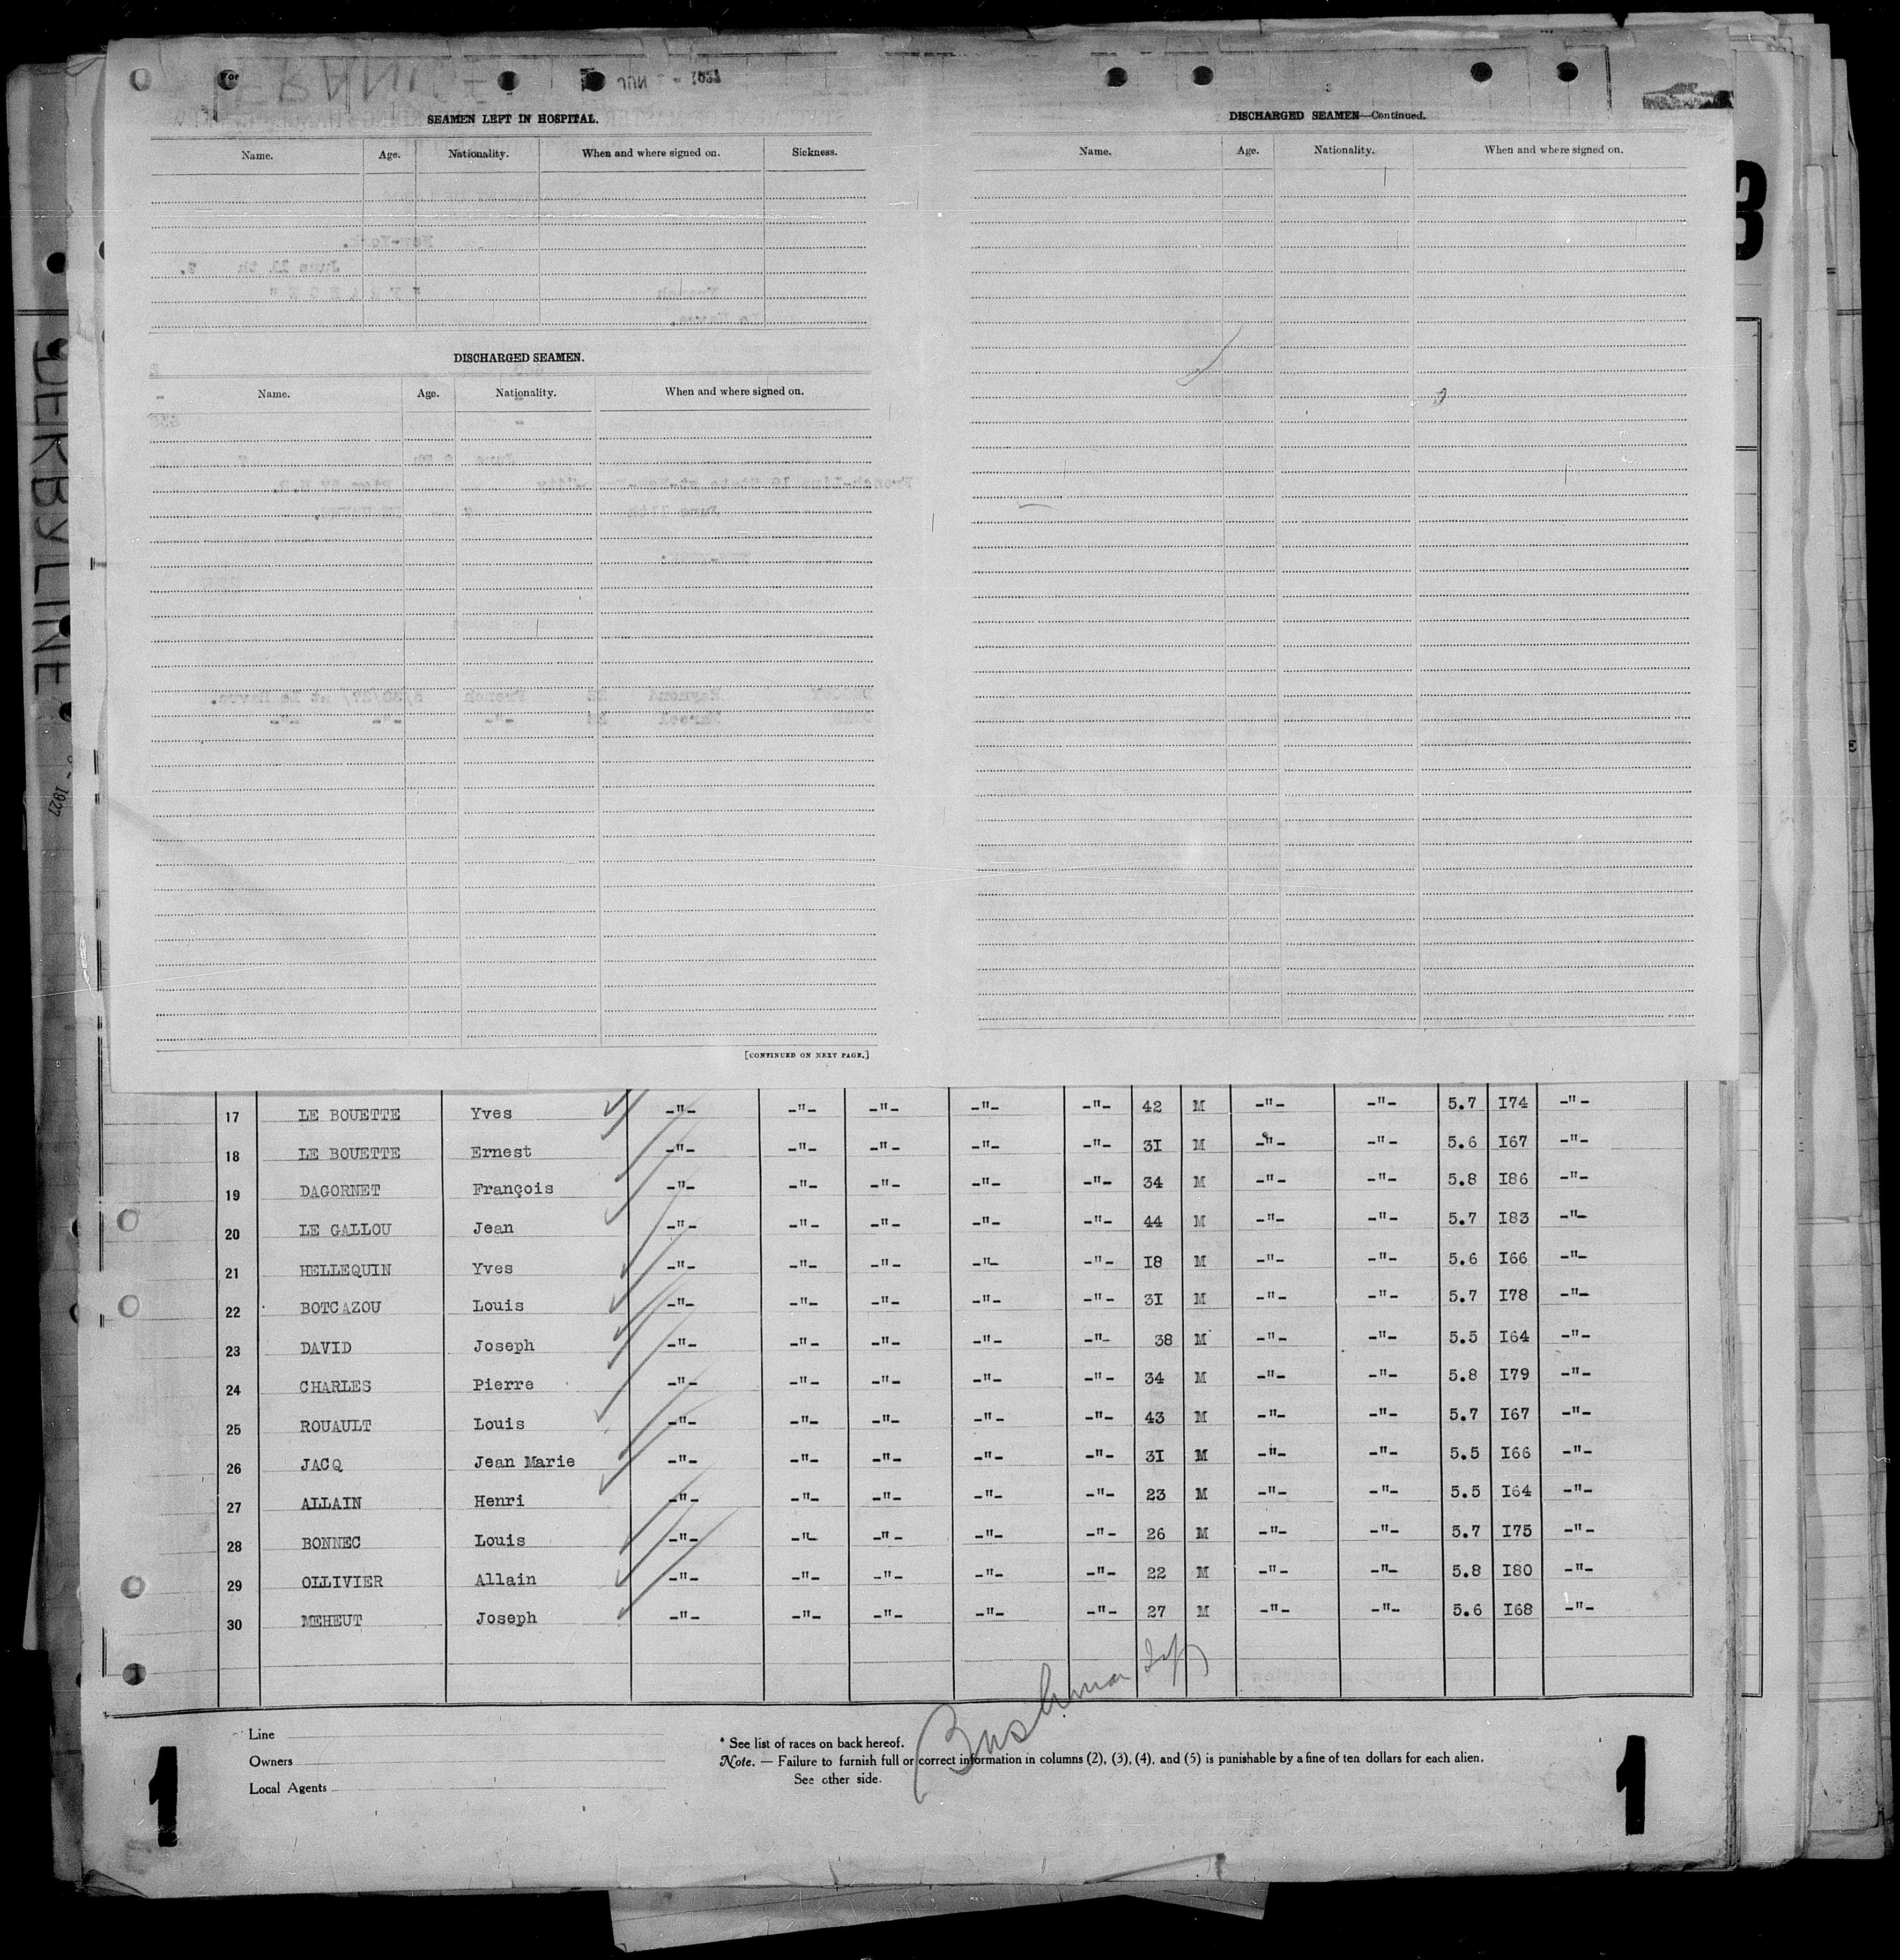 SEAMEN LEFT IN HOSPITAL.
Name. Age. Nationality. When and where signed on. Sickness.
DISCHARGED SEAMEN.
Name. Age. Nationality. When and where signed on.
[CONTINUED ON NEXT PAGE.]
3
DISCHARGED SEAMEN—Continued.
Name. Age. Nationality. When and where signed on.
3
DERBYLINE
1927
17 LE BOUETTE Yves -"- -"- -"- -"- -"- 42 M -"- -"- 5.7 I74 -"-
18 LE BOUETTE Ernest -"- -"- -"- -"- -"- 3I M -"- -"- 5.6 I67 -"-
19 DAGORNET François -"- -"- -"- -"- -"- 34 M -"- -"- 5.8 I86 -"-
20 LE GALLOU Jean -"- -"- -"- -"- -"- 44 M -"- -"- 5.7 I83 -"-
21 HELLEQUIN Yves -"- -"- -"- -"- -"- I8 M -"- -"- 5.6 I66 -"-
22 BOTCAZOU Louis -"- -"- -"- -"- -"- 3I M -"- -"- 5.7 I78 -"-
23 DAVID Joseph -"- -"- -"- -"- -"- 38 M -"- -"- 5.5 I64 -"-
24 CHARLES Pierre -"- -"- -"- -"- -"- 34 M -"- -"- 5.8 I79 -"-
25 ROUAULT Louis -"- -"- -"- -"- -"- 43 M -"- -"- 5.7 I67 -"-
26 JACQ Jean Marie -"- -"- -"- -"- -"- 3I M -"- -"- 5.5 I66 -"-
27 ALLAIN Henri -"- -"- -"- -"- -"- 23 M -"- -"- 5.5 I64 -"-
28 BONNEC Louis -"- -"- -"- -"- -"- 26 M -"- -"- 5.7 I75 -"-
29 OLLIVIER Allain -"- -"- -"- -"- -"- 22 M -"- -"- 5.8 I80 -"-
30 MEHEUT Joseph -"- -"- -"- -"- -"- 27 M -"- -"- 5.6 I68 -"-
Line
Owners
Local Agents
* See list of races on back hereof.
Note. — Failure to furnish full or correct information in columns (2), (3), (4), and (5) is punishable by a fine of ten dollars for each alien.
See other side.
1
1